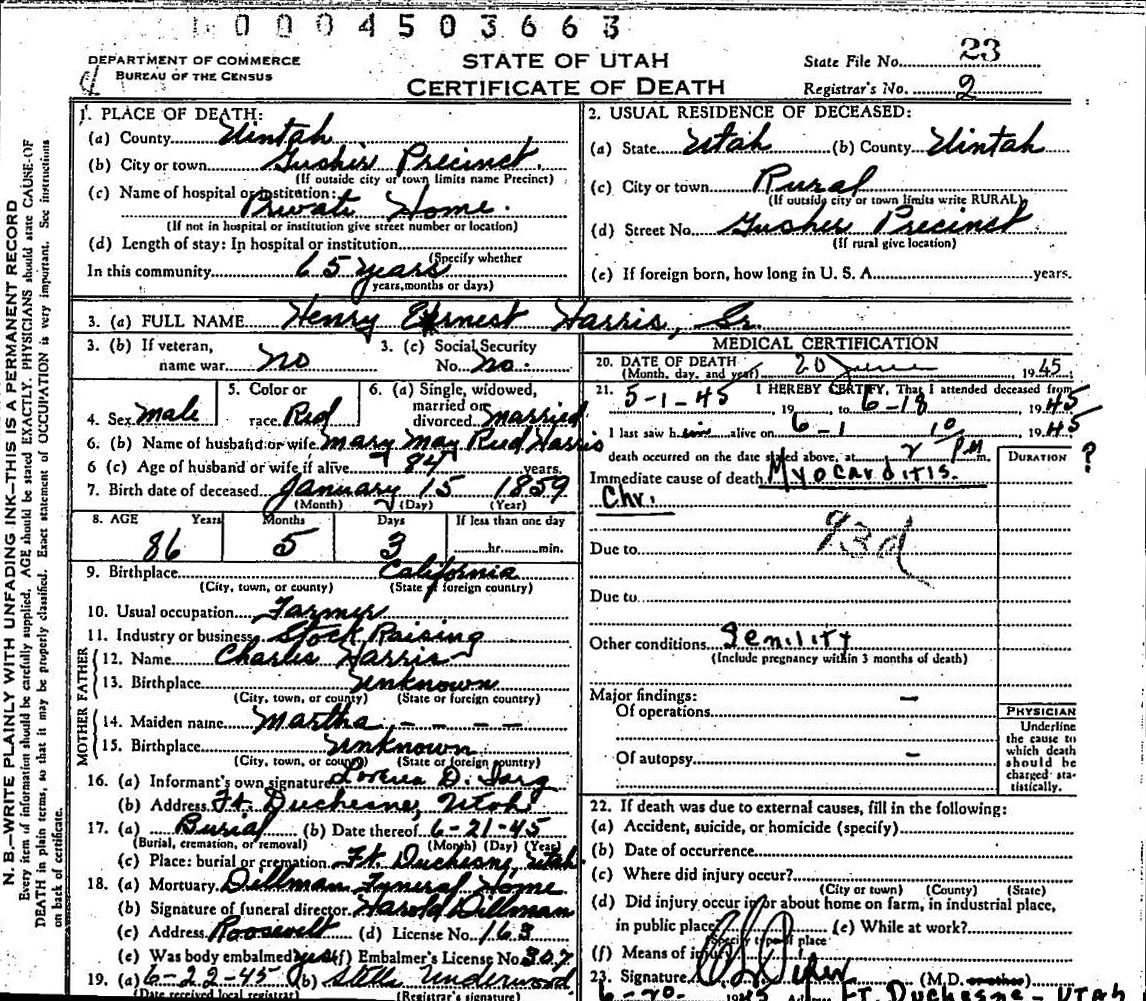 1 0 0 0 4 5 0 3 6 6 3
DEPARTMENT OF COMMERCE
BUREAU OF THE CENSUS
STATE OF UTAH
CERTIFICATE OF DEATH
State File No. 23
Registrar's No. 2
N. B.—WRITE PLAINLY WITH UNFADING INK—THIS IS A PERMANENT RECORD
Every item of information should be carefully supplied. AGE should be stated EXACTLY. PHYSICIANS should state CAUSE OF
DEATH in plain terms, so that it may be properly classified. Exact statement of OCCUPATION is very important. See instructions
on back of certificate.
1. PLACE OF DEATH:
(a) County Uintah
(b) City or town Gusher Precinct.
(If outside city or town limits name Precinct)
(c) Name of hospital or institution:
Private Home.
(If not in hospital or institution give street number or location)
(d) Length of stay: In hospital or institution
(Specify whether
In this community 65 years
years, months or days)
2. USUAL RESIDENCE OF DECEASED:
(a) State Utah (b) County Uintah
(c) City or town Rural
(If outside city or town limits write RURAL)
(d) Street No. Gusher Precinct
(If rural give location)
(e) If foreign born, how long in U. S. A. years.
3. (a) FULL NAME Henry Ernest Harris, Sr.
3. (b) If veteran,
name war no
3. (c) Social Security
No. no.
4. Sex Male
5. Color or
race Red
6. (a) Single, widowed,
married or
divorced married
6. (b) Name of husband or wife Mary May Reed Harris
6 (c) Age of husband or wife if alive 84 years.
7. Birth date of deceased January 15 1859
(Month) (Day) (Year)
8. AGE Years Months Days If less than one day
86 5 3 hr. min.
9. Birthplace California
(City, town, or county) (State or foreign country)
10. Usual occupation Farmer
11. Industry or business Stock Raising
FATHER
12. Name Charles Harris
13. Birthplace Unknown
(City, town, or county) (State or foreign country)
MOTHER
14. Maiden name Martha - - - -
15. Birthplace Unknown
(City, town, or county) (State or foreign country)
16. (a) Informant's own signature D.
(b) Address Ft. Duchesne, Utah
17. (a) Burial (b) Date thereof 6-21-45
(Burial, cremation, or removal) (Month) (Day) (Year)
(c) Place: burial or cremation Ft. Duchesne, Utah
18. (a) Mortuary Dillman Funeral Home
(b) Signature of funeral director Harold Dillman
(c) Address Roosevelt (d) License No. 163
(e) Was body embalmed yes (f) Embalmer's License No. 307
19. (a) 6-22-45 (b) Stella Underwood
(Date received local registrar) (Registrar's signature)
MEDICAL CERTIFICATION
20. DATE OF DEATH 20 June 1945.
(Month, day, and year)
21. I HEREBY CERTIFY, That I attended deceased from
5-1-45 19 to 6-18 1945
I last saw him alive on 6-1 1945
death occurred on the date stated above, at 2 10/ pm m.
DURATION ?
Immediate cause of death Myocarditis.
Chr.
93d
Due to
Due to
Other conditions Senility
(Include pregnancy within 3 months of death)
Major findings:
Of operations -
Of autopsy -
PHYSICIAN
Underline
the cause to
which death
should be
charged sta-
tistically.
22. If death was due to external causes, fill in the following:
(a) Accident, suicide, or homicide (specify)
(b) Date of occurrence
(c) Where did injury occur?
(City or town) (County) (State)
(d) Did injury occur in or about home on farm, in industrial place,
in public place (e) While at work?
(Specify type of place
(f) Means of injury
23. Signature (M.D. or other)
6-20- 1945 Ft. Duchesne - Utah